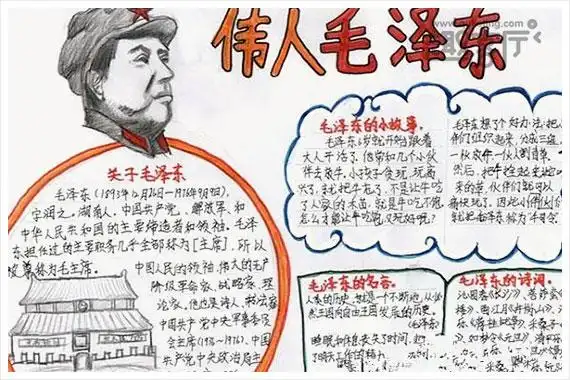 伟人毛泽东
关于毛泽东
毛泽东(1893年12月26日-1976年9月9日),
字润之,湖南人,中国共产党、解放军、和
中华人民共和国的主要缔造者和领袖。毛泽
东担任过的主要职务几乎全部称为[主席],所以
尊称为毛主席。
中国人民的领袖,伟大的无产
阶级革命家、战略家、理
论家。他也是诗人、书法家
中国共产党中央军事委员
会主席(1936~1976),中国
共产党中央政治局主
毛泽东的小故事。
毛泽东6岁就开始跟着
大人干活了,他常和几个小伙
伴去放牛,小孩子贪玩,玩高
兴了,就把牛忘了,不是让牛吃
了人家的禾苗,就是牛吃不饱。
怎么才能让牛吃饱又玩好呢?
毛泽东想了个好办法,把小
们组织起来,分成三
伙放牛,一伙割青草,
然后,把牛拴起来
来的草,伙伴们就可以
痛快玩了。因此小伙伴们
就把毛泽东称为"牛司令"
毛泽东的名言。
人类的历史,就是一个不断地从必
然王国向自由王国发展的历史。
(毛泽东)
睡眠和休息丧失了时间,却
了明天工作的精力
毛泽东的诗词。
沁园春《长沙》、菩萨蛮
楼》、西江月《井冈山》、
乐《蒋桂战争》、采桑子
、如梦令《元旦》、